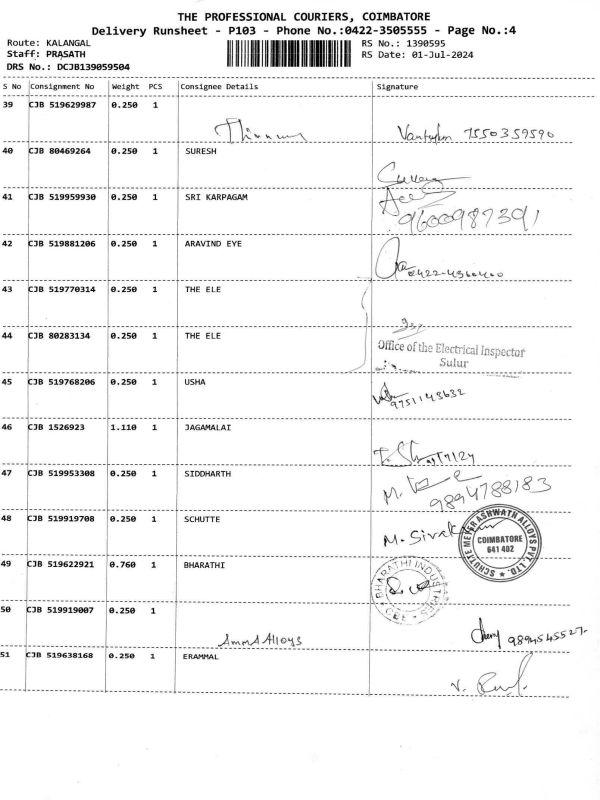 THE PROFESSIONAL COURIERS, COIMBATORE
Delivery Runsheet - P103 - Phone No.:0422-3505555 - Page No.:4
Route: KALANGAL
RS No.: 1390595
Staff: PRASATH
RS Date: 01-Jul-2024
DRS No.: DCJB139059504
S No Consignment No Weight PCS Consignee Details Signature
39 CJB 519629987 0.250 1
7550359590
40 CJB 80469264 0.250 1 SURESH
41 CJB 519959930 0.250 1 SRI KARPAGAM
9600987391
42 CJB 519881206 0.250 1 ARAVIND EYE
0422-4360400
43 CJB 519770314 0.250 1 THE ELE
44 CJB 80283134 0.250 1 THE ELE
Office of the Electrical Inspector
Sulur
45 CJB 519768206 0.250 1 USHA
9751143632
46 CJB 1526923 1.110 1 JAGAMALAI
47 CJB 519953308 0.250 1 SIDDHARTH
9894788183
48 CJB 519919708 0.250 1 SCHUTTE
M. Siva
SCHUTTE MEYER ASHWATH ALLOYS PVT. LTD.
COIMBATORE
641 402
49 CJB 519622921 0.760 1 BHARATHI
BHARATHI INDUSTRIES
CBE
50 CJB 519919007 0.250 1
Amma Alloys
9894545527
51 CJB 519638168 0.250 1 ERAMMAL